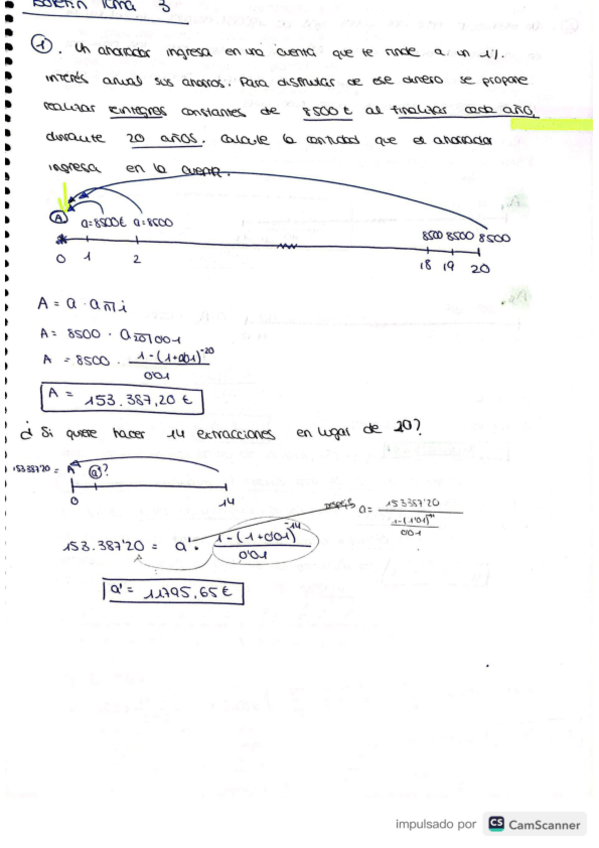 Boletín Tema 3
1. Un ahorrador ingresa en una cuenta que te rinde a un 1%
interés anual sus ahorros. Para disfrutar de ese dinero se propone
realizar reintegros constantes de 8500 € al finalizar cada año,
durante 20 años. Calcule la cantidad que el ahorrador
ingresa en la cuenta.
A a=8500€ a=8500 8500 8500 8500
0 1 2 18 19 20
A = a · a n̅| i
A = 8500 · a 20̅| 0'01
A = 8500 · 1-(1+0'01)^-20 / 0'01
A = 153.387,20 €
¿ Si quiere hacer 14 extracciones en lugar de 20?
153387'20 = A a' ?
0 14
a = 153387'20 / 1-(1'01)^-14 / 0'01
153.387'20 = a' · 1-(1+0'01)^-14 / 0'01
a' = 11795,65 €
impulsado por CS CamScanner